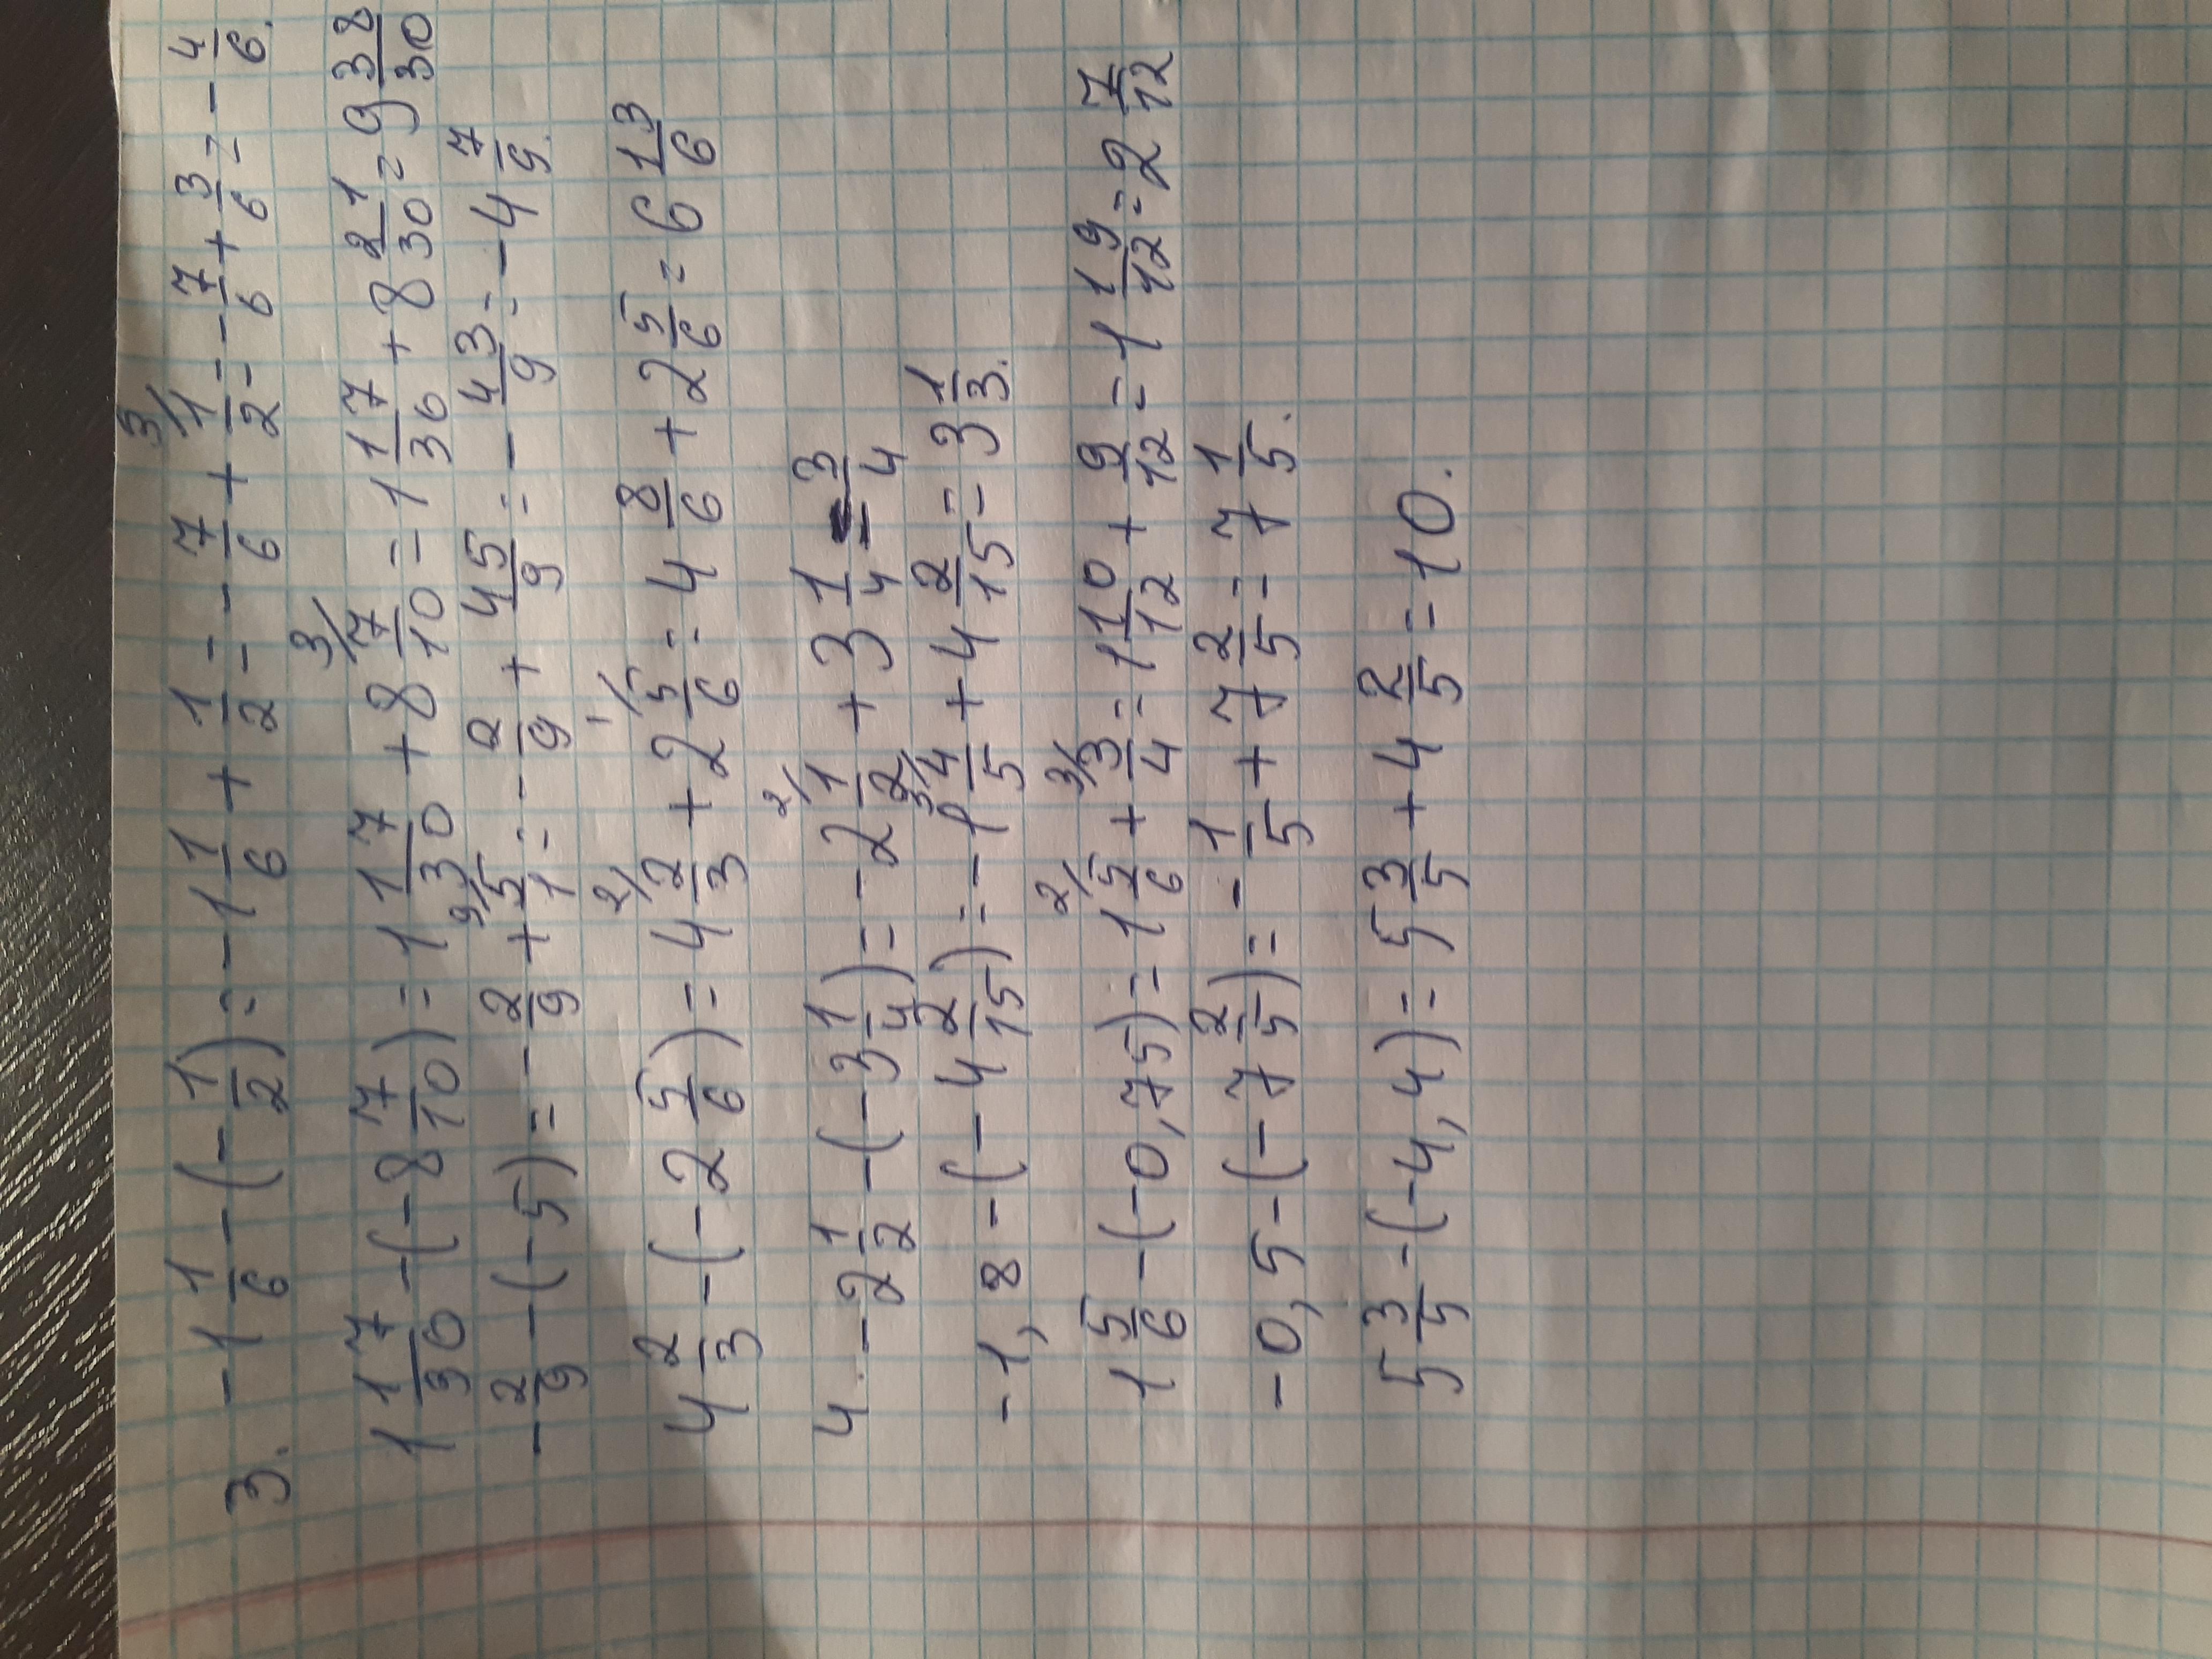 3. -1 1/6 - (-1/2) = -1 1/6 + 1/2 = -7/6 + 3/1/2 = -7/6 + 3/6 = -4/6.
1 17/30 - (-8 7/10) = 1 17/30 + 8 3/7/10 = 1 17/30 + 8 21/30 = 9 38/30
-2/9 - (-5) = -2/9 + 9/5/1 = -2/9 + 45/9 = -43/9 = -4 7/9.
4 2/3 - (-2 5/6) = 4 2/2/3 + 2 1/5/6 = 4 8/6 + 2 5/6 = 6 13/6
4. -2 1/2 - (-3 1/4) = -2 2/1/2 + 3 1/4 = 3/4
-1,8 - (-4 2/15) = -1 3/4/5 + 4 2/15 = 3 1/3.
1 5/6 - (-0,75) = 1 2/5/6 + 3/3/4 = 1 10/12 + 9/12 = 1 19/12 = 2 7/12
-0,5 - (-7 2/5) = -1/5 + 7 2/5 = 7 1/5.
5 3/5 - (-4,4) = 5 3/5 + 4 2/5 = 10.